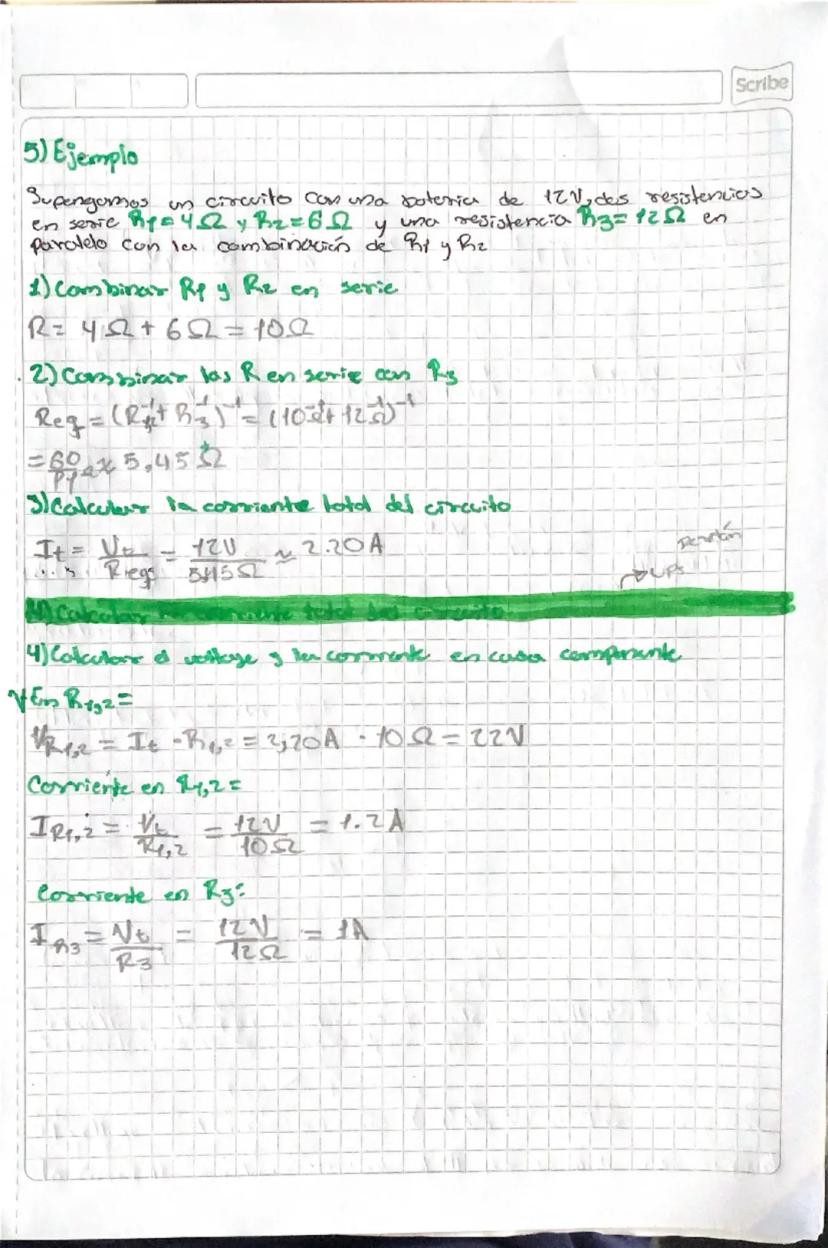 Scribe
5) Ejemplo
Supengamos un circuito con una bateria de 12V, dos resistencias
en serie R1=4Ω y R2=6Ω y una resistencia R3=12Ω en
paralelo con la combinación de R1 y R2
1) Combinar R1 y R2 en serie
R= 4Ω + 6Ω = 10Ω
2) Combinar las R en serie con R3
Req = (R12⁻¹ + R3⁻¹)⁻¹ = (10Ω⁻¹ + 12Ω⁻¹)⁻¹
= 60/11 Ω ≈ 5,45Ω
3) Calcular la corriente total del circuito
It = Vt/Req = 12V/5,45Ω ≈ 2.20A
Calcular la corriente total del circuito
4) Calcular el voltaje y la corriente en cada componente
V En R1,2 =
VR1,2 = It · R1,2 = 2,20A · 10Ω = 22V
Corriente en R1,2 =
IR1,2 = Vt/R1,2 = 12V/10Ω = 1.2A
Corriente en R3:
IR3 = Vt/R3 = 12V/12Ω = 1A